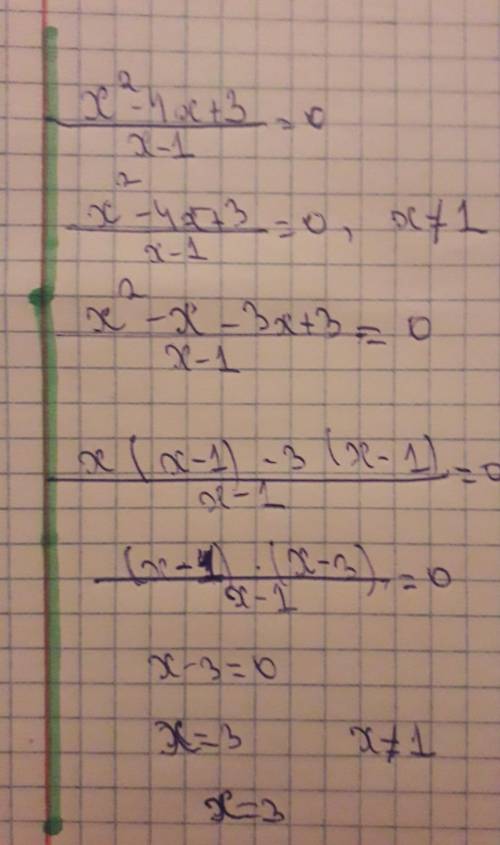 x²-4x+3 / x-1 = 0
x²-4x+3 / x-1 = 0, x≠1
x²-x-3x+3 / x-1 = 0
x(x-1)-3(x-1) / x-1 = 0
(x-1)·(x-3) / x-1 = 0
x-3=0
x=3 x≠1
x=3